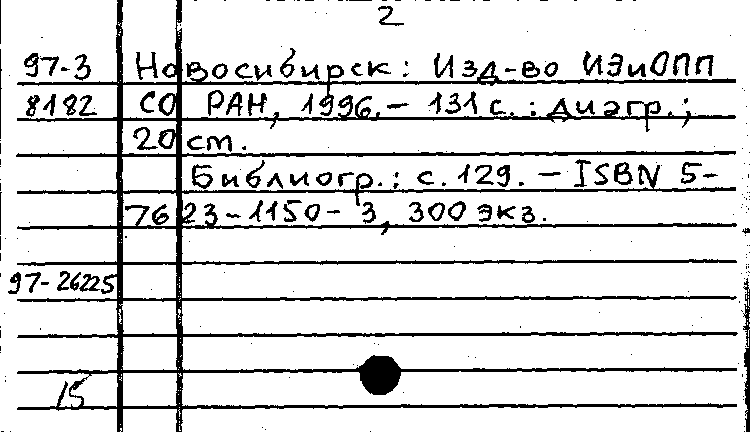 2
97-3 Новосибирск: Изд-во ИЭиОПП
8182 СО РАН, 1996.- 131 с.: диагр.;
20 cm.
Библиогр.: с. 129. - ISBN 5-
7623-1150-3, 300 экз.
97-26225
15